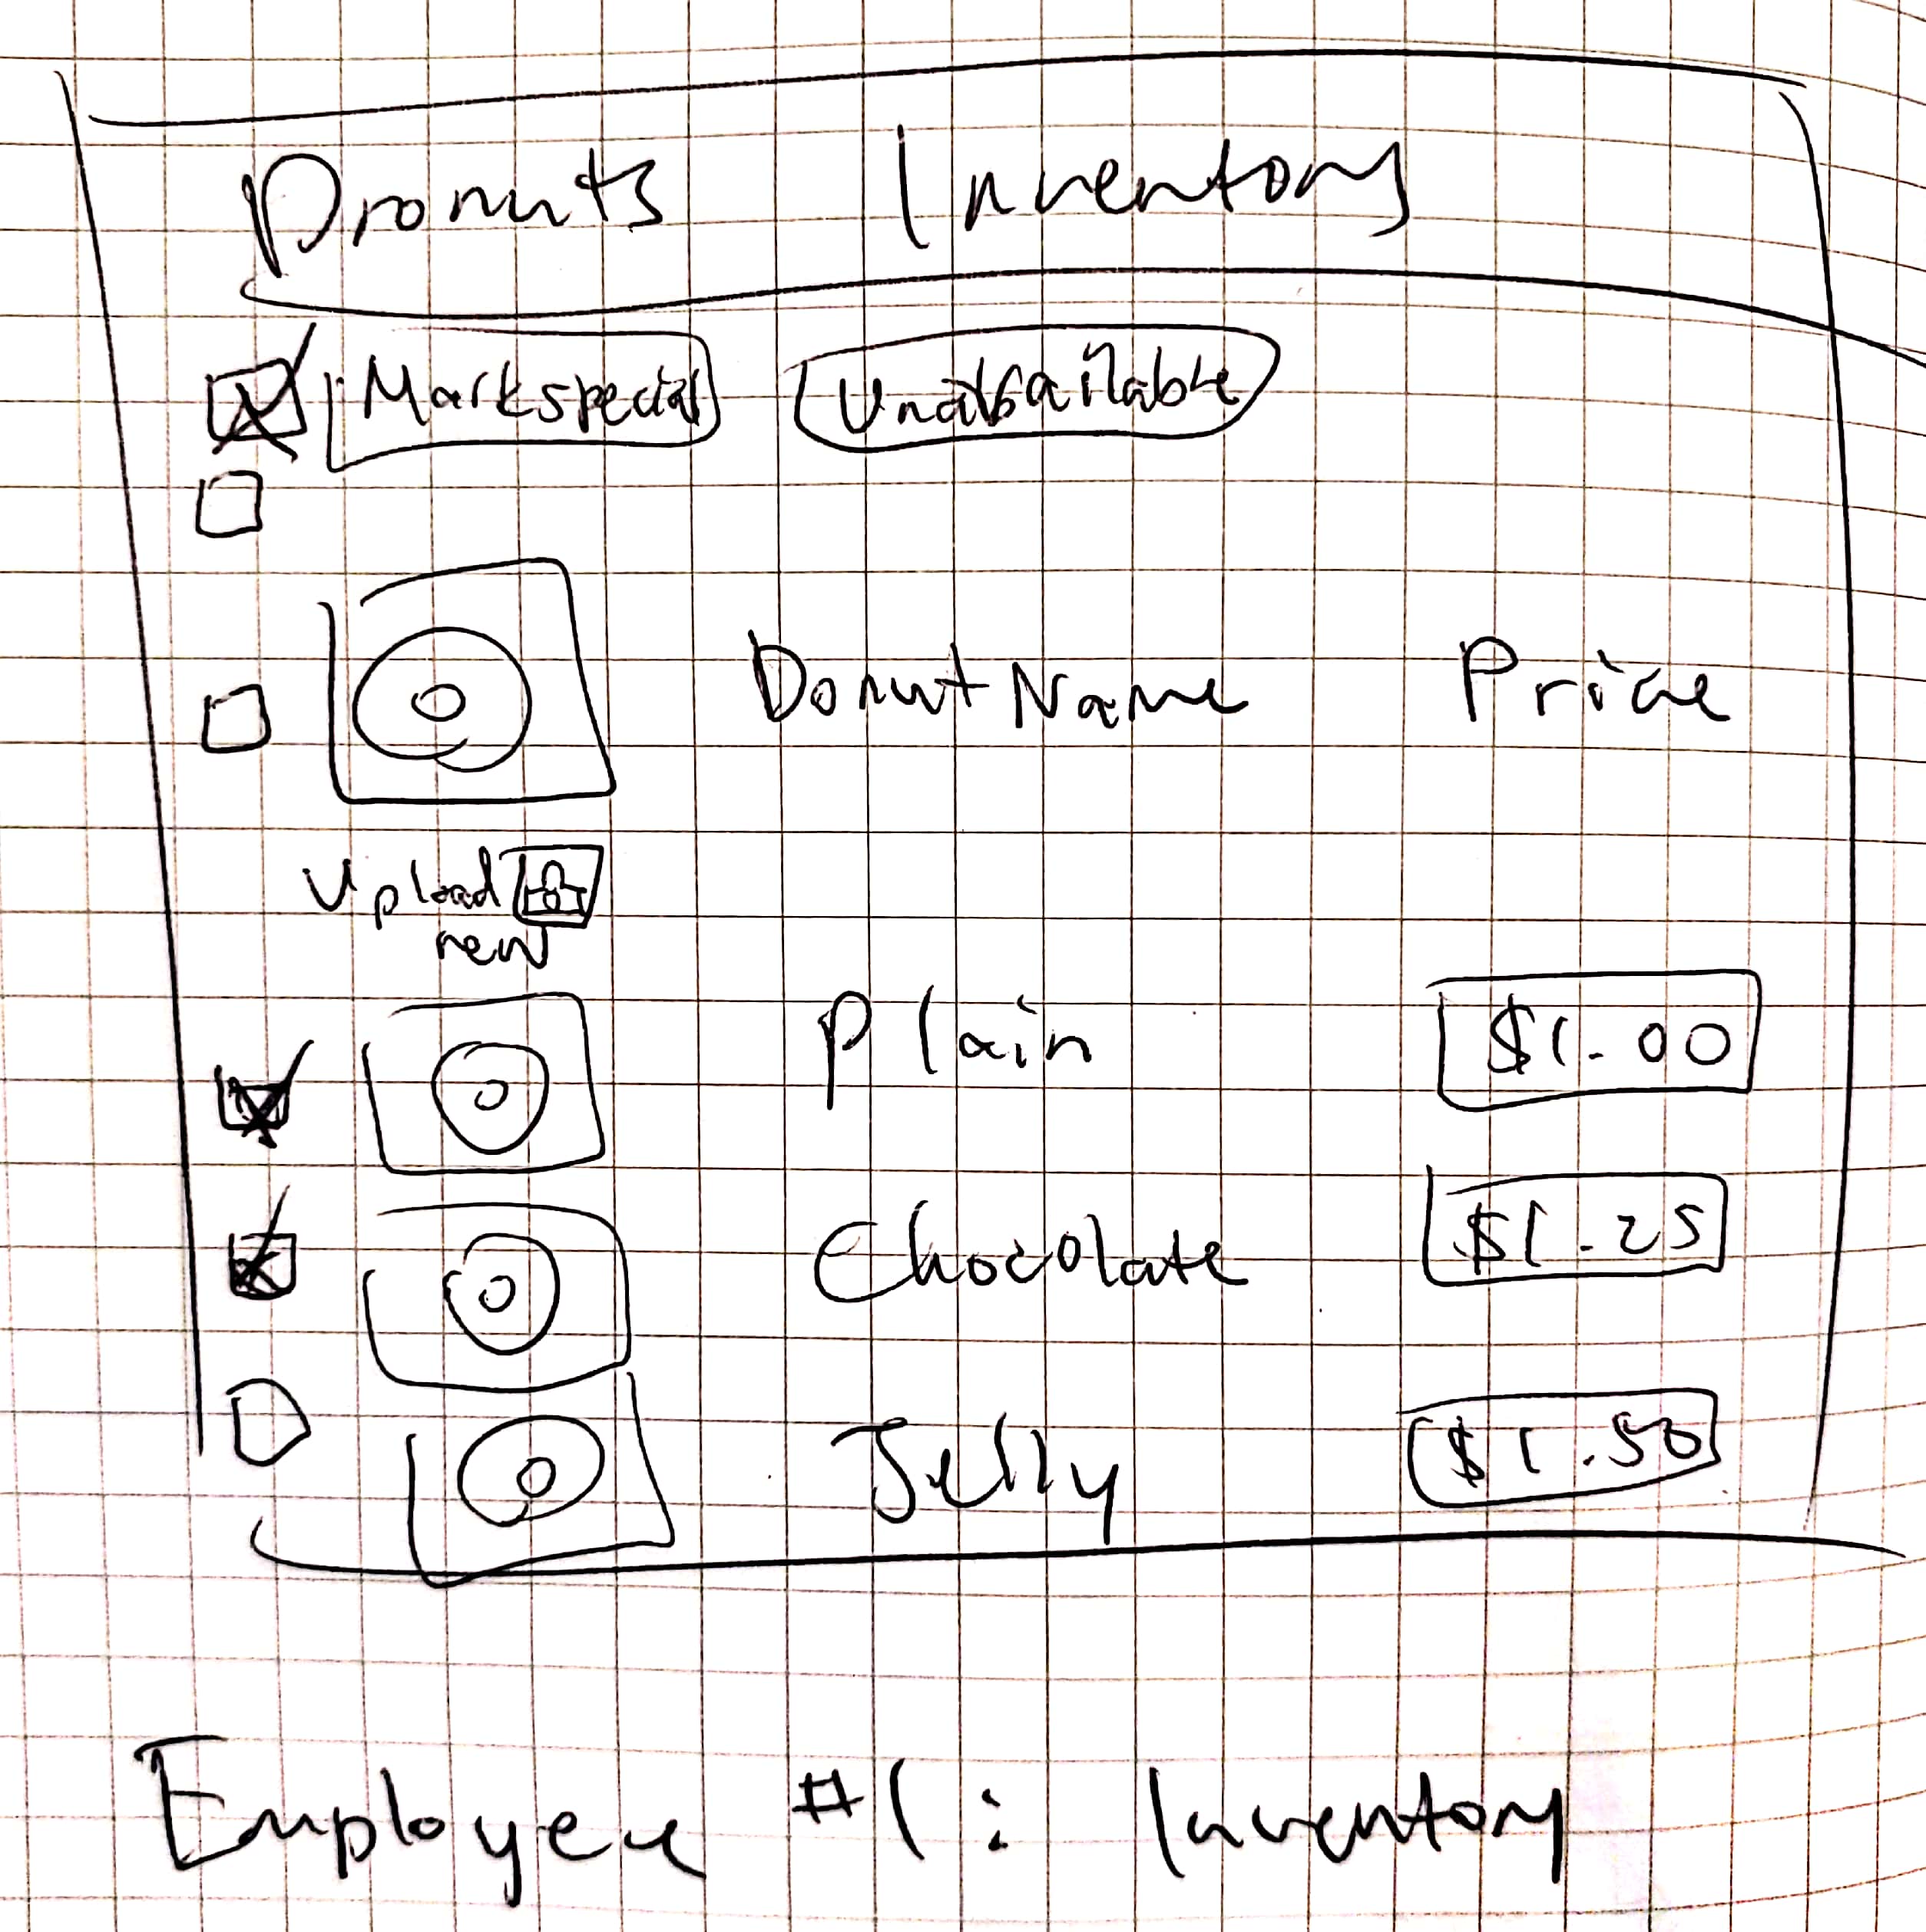 Pronuts Inventory
Mark special Unavailable
Donut Name Price
Upload
new
Plain $1.00
Chocolate $1.25
Jelly $1.50
Employee #1: Inventory